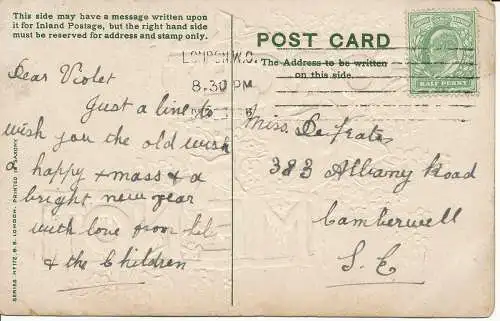 This side may have a message written upon
it for Inland Postage, but the right hand side
must be reserved for address and stamp only.
POST CARD
The Address to be written
on this side.
HALF PENNY
LONDON W.C.
8.30 PM
Dear Violet
Just a line to
wish you the old wish
a happy + mass & a
bright new year
with love from
& the Children
Miss.
383 Albany Road
Camberwell
S. E
PRINTED IN SAXONY